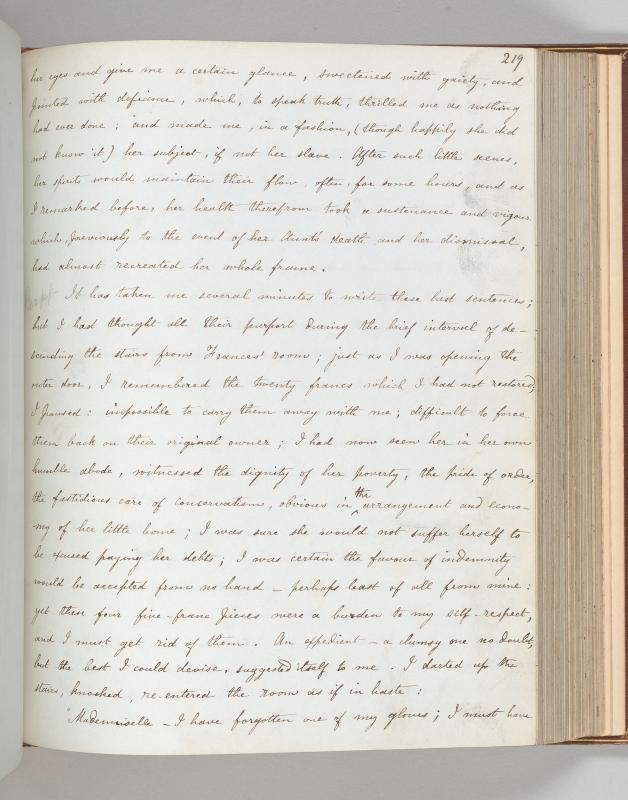 219
her eyes and give me a certain glance, sweetened with gaiety, and
pointed with defiance, which, to speak truth, thrilled me as nothing
had ever done; and made me, in a fashion, (though happily she did
not know it) her subject, if not her slave. After such little scenes,
her spirits would maintain their flow, often for some hours, and as
I remarked before, her health therefrom took a sustenance and vigour
which, previously to the event of her Aunt's death and her dismissal,
had almost recreated her whole frame.
It has taken me several minutes to write these last sentences;
but I had thought all their purport during the brief interval of de-
scending the stairs from Frances' room; just as I was opening the
outer door, I remembered the twenty francs which I had not restored;
I paused: impossible to carry them away with me; difficult to force
them back on their original owner; I had now seen her in her own
humble abode, witnessed the dignity of her poverty, the pride of order,
the fastidious care of conservatism, obvious in the arrangement and econo-
my of her little home; I was sure she would not suffer herself to
be excused paying her debts; I was certain the favour of indemnity
would be accepted from no hand – perhaps least of all from mine:
yet these four five-franc pieces were a burden to my self-respect,
and I must get rid of them. An expedient – a clumsy one no doubt,
but the best I could devise, suggested itself to me. I darted up the
stairs, knocked, re-entered the room as if in haste:
"Mademoiselle – I have forgotten one of my gloves; I must have